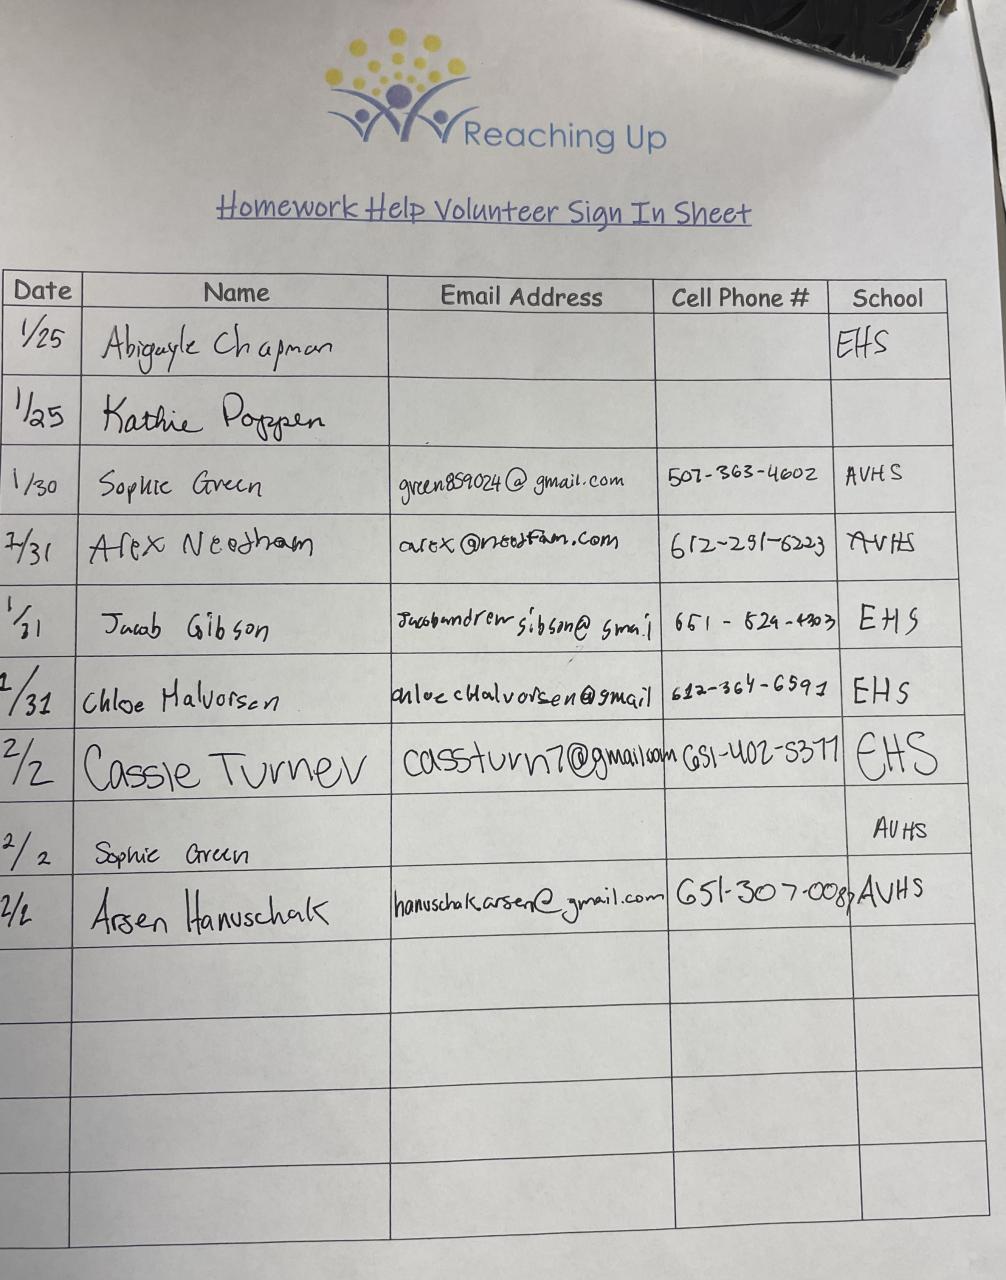 Reaching Up
Homework Help Volunteer Sign In Sheet
Date Name Email Address Cell Phone # School
1/25 Abigayle Chapman EHS
1/25 Kathie Poppen
1/30 Sophie Green green859024@gmail.com 507-363-4602 AVHS
1/31 Alex Needham alex@needfam.com 612-291-6223 AVHS
1/31 Jacob Gibson Jacobandrewgibson@gmail 651-529-4303 EHS
1/31 Chloe Halvorsen chloecHalvorsen@gmail 612-364-6591 EHS
2/2 Cassie Turner cassturn7@gmail.com 651-402-5377 EHS
2/2 Sophie Green AVHS
2/2 Arsen Hanuschak hanuschak.arsen@gmail.com AVHS